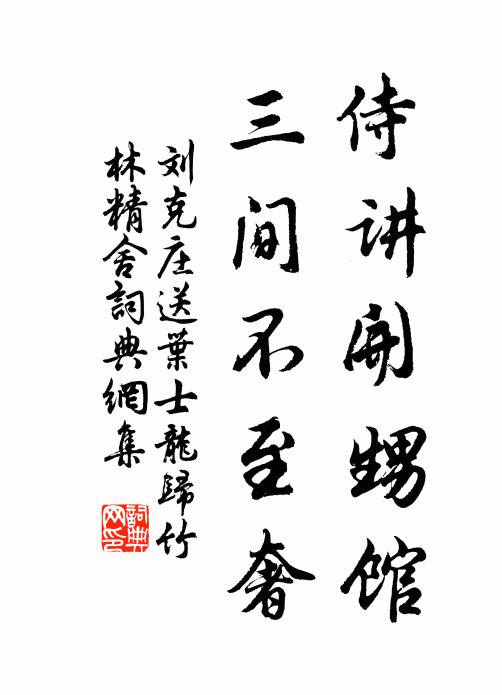 侍讲開甥馆
三间不至奢
刘克庄送葉士龍歸竹
林精舍詞典網集
詞典网印